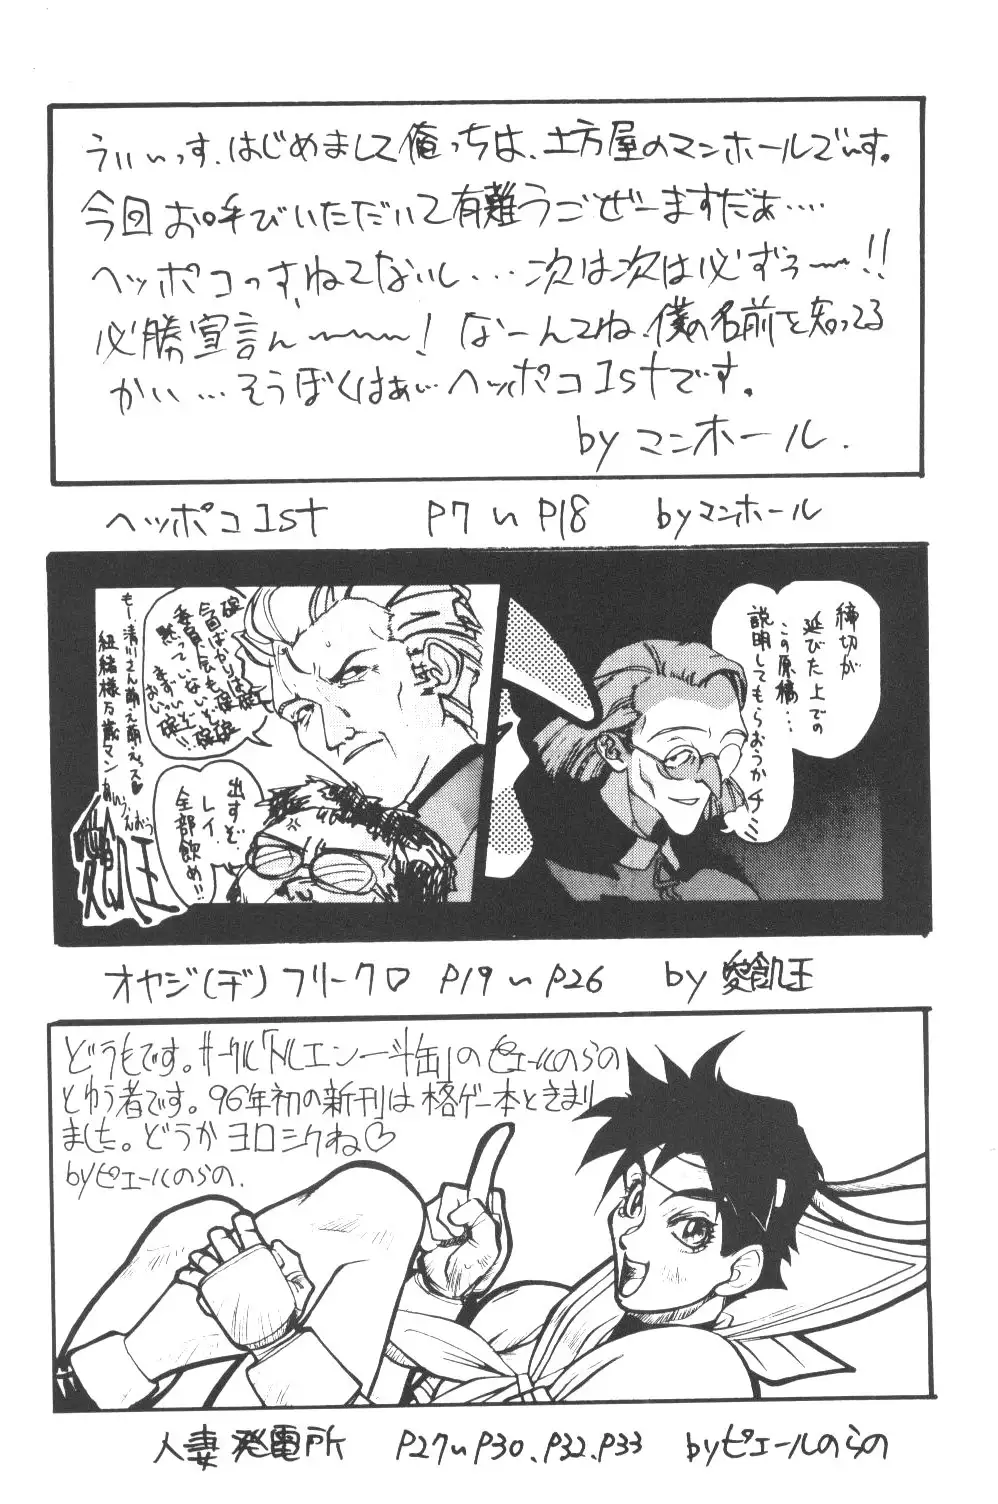 うぃぃっす、はじめまして俺っちは、土方屋のマンホールでぃす。
今回お呼びいただいて有難うごぜーますだぁ‥‥
ヘッポコっす、ねてないし…次は次は必ずぅ〜!!
必勝宣言ん〜〜!なーんてね、僕の名前を知ってる
かい…そうぼくはぁぃヘッポコ1stです。
byマンホール.
ヘッポコ1st P7〜P18 byマンホール
締切が
延びた上での
この原稿…
説明してもらおうか
出すぞ
レイ、
全部飲め!!
もー清川さん萌え萌えっス♡
紐緒様万歳マン
愛飢王
オヤジ(ヂ)フリークロ P19〜P26 by 愛飢王
どうもです。サークル「トルエン一斗缶」のピエールのらの
とゆう者です。96年初の新刊は格ゲー本ときまり
ました。どうかヨロシクね♡
byピエールのらの.
人妻発電所 P27〜P30、P32、P33 byピエールのらの